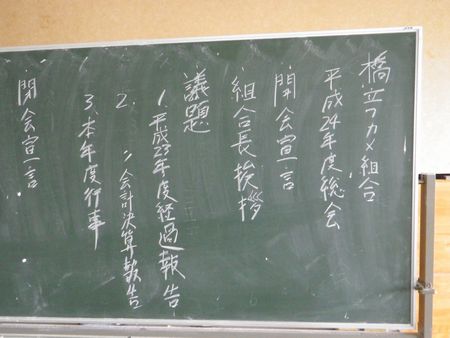 橋立ワカメ組合
平成24年度総会
開会宣言
組合長挨拶
議題
1. 平成23年度経過報告
2. 〃 会計決算報告
3. 本年度行事
閉会宣言